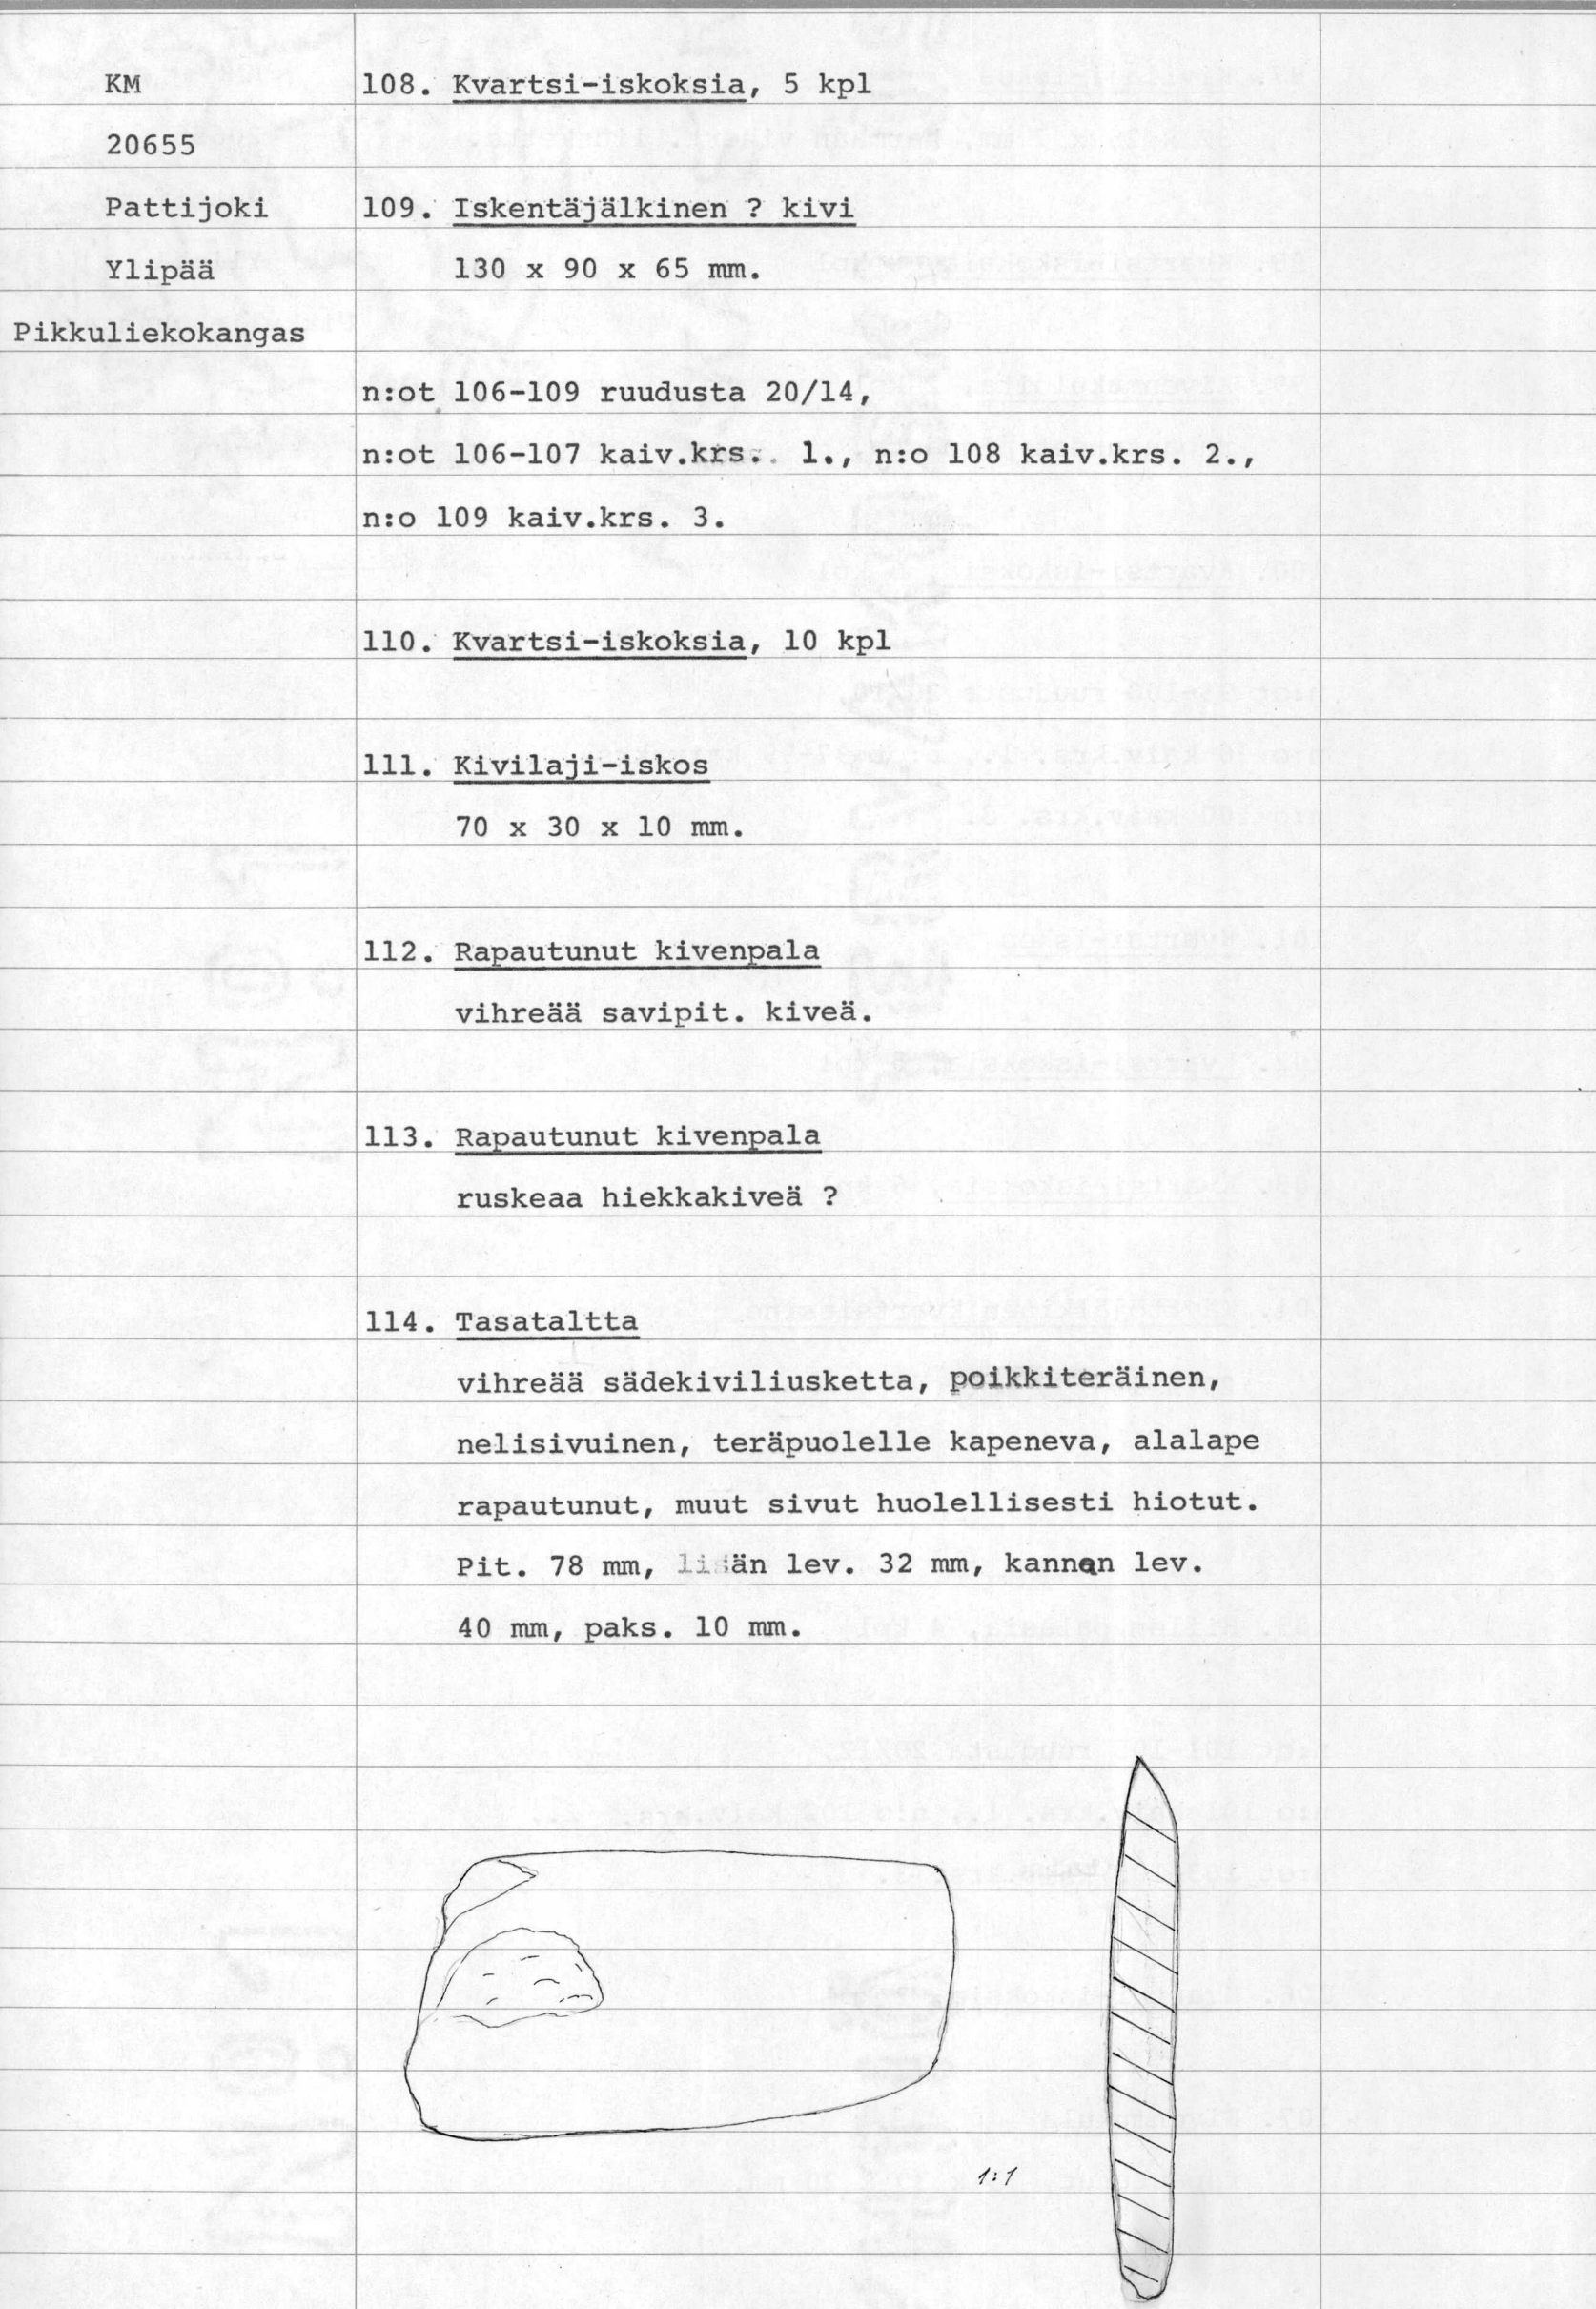 KM
20655
Pattijoki
Ylipää
Pikkuliekokangas
108. Kvartsi-iskoksia, 5 kpl
109. Iskentäjälkinen ? kivi
130 x 90 x 65 mm.
n:ot 106-109 ruudusta 20/14,
n:ot 106-107 kaiv.krs. 1., n:o 108 kaiv.krs. 2.,
n:o 109 kaiv.krs. 3.
110. Kvartsi-iskoksia, 10 kpl
111. Kivilaji-iskos
70 x 30 x 10 mm.
112. Rapautunut kivenpala
vihreää savipit. kiveä.
113. Rapautunut kivenpala
ruskeaa hiekkakiveä ?
114. Tasataltta
vihreää sädekiviliusketta, poikkiteräinen,
nelisivuinen, teräpuolelle kapeneva, alalape
rapautunut, muut sivut huolellisesti hiotut.
Pit. 78 mm, lev. 32 mm, kannan lev.
40 mm, paks. 10 mm.
1:1